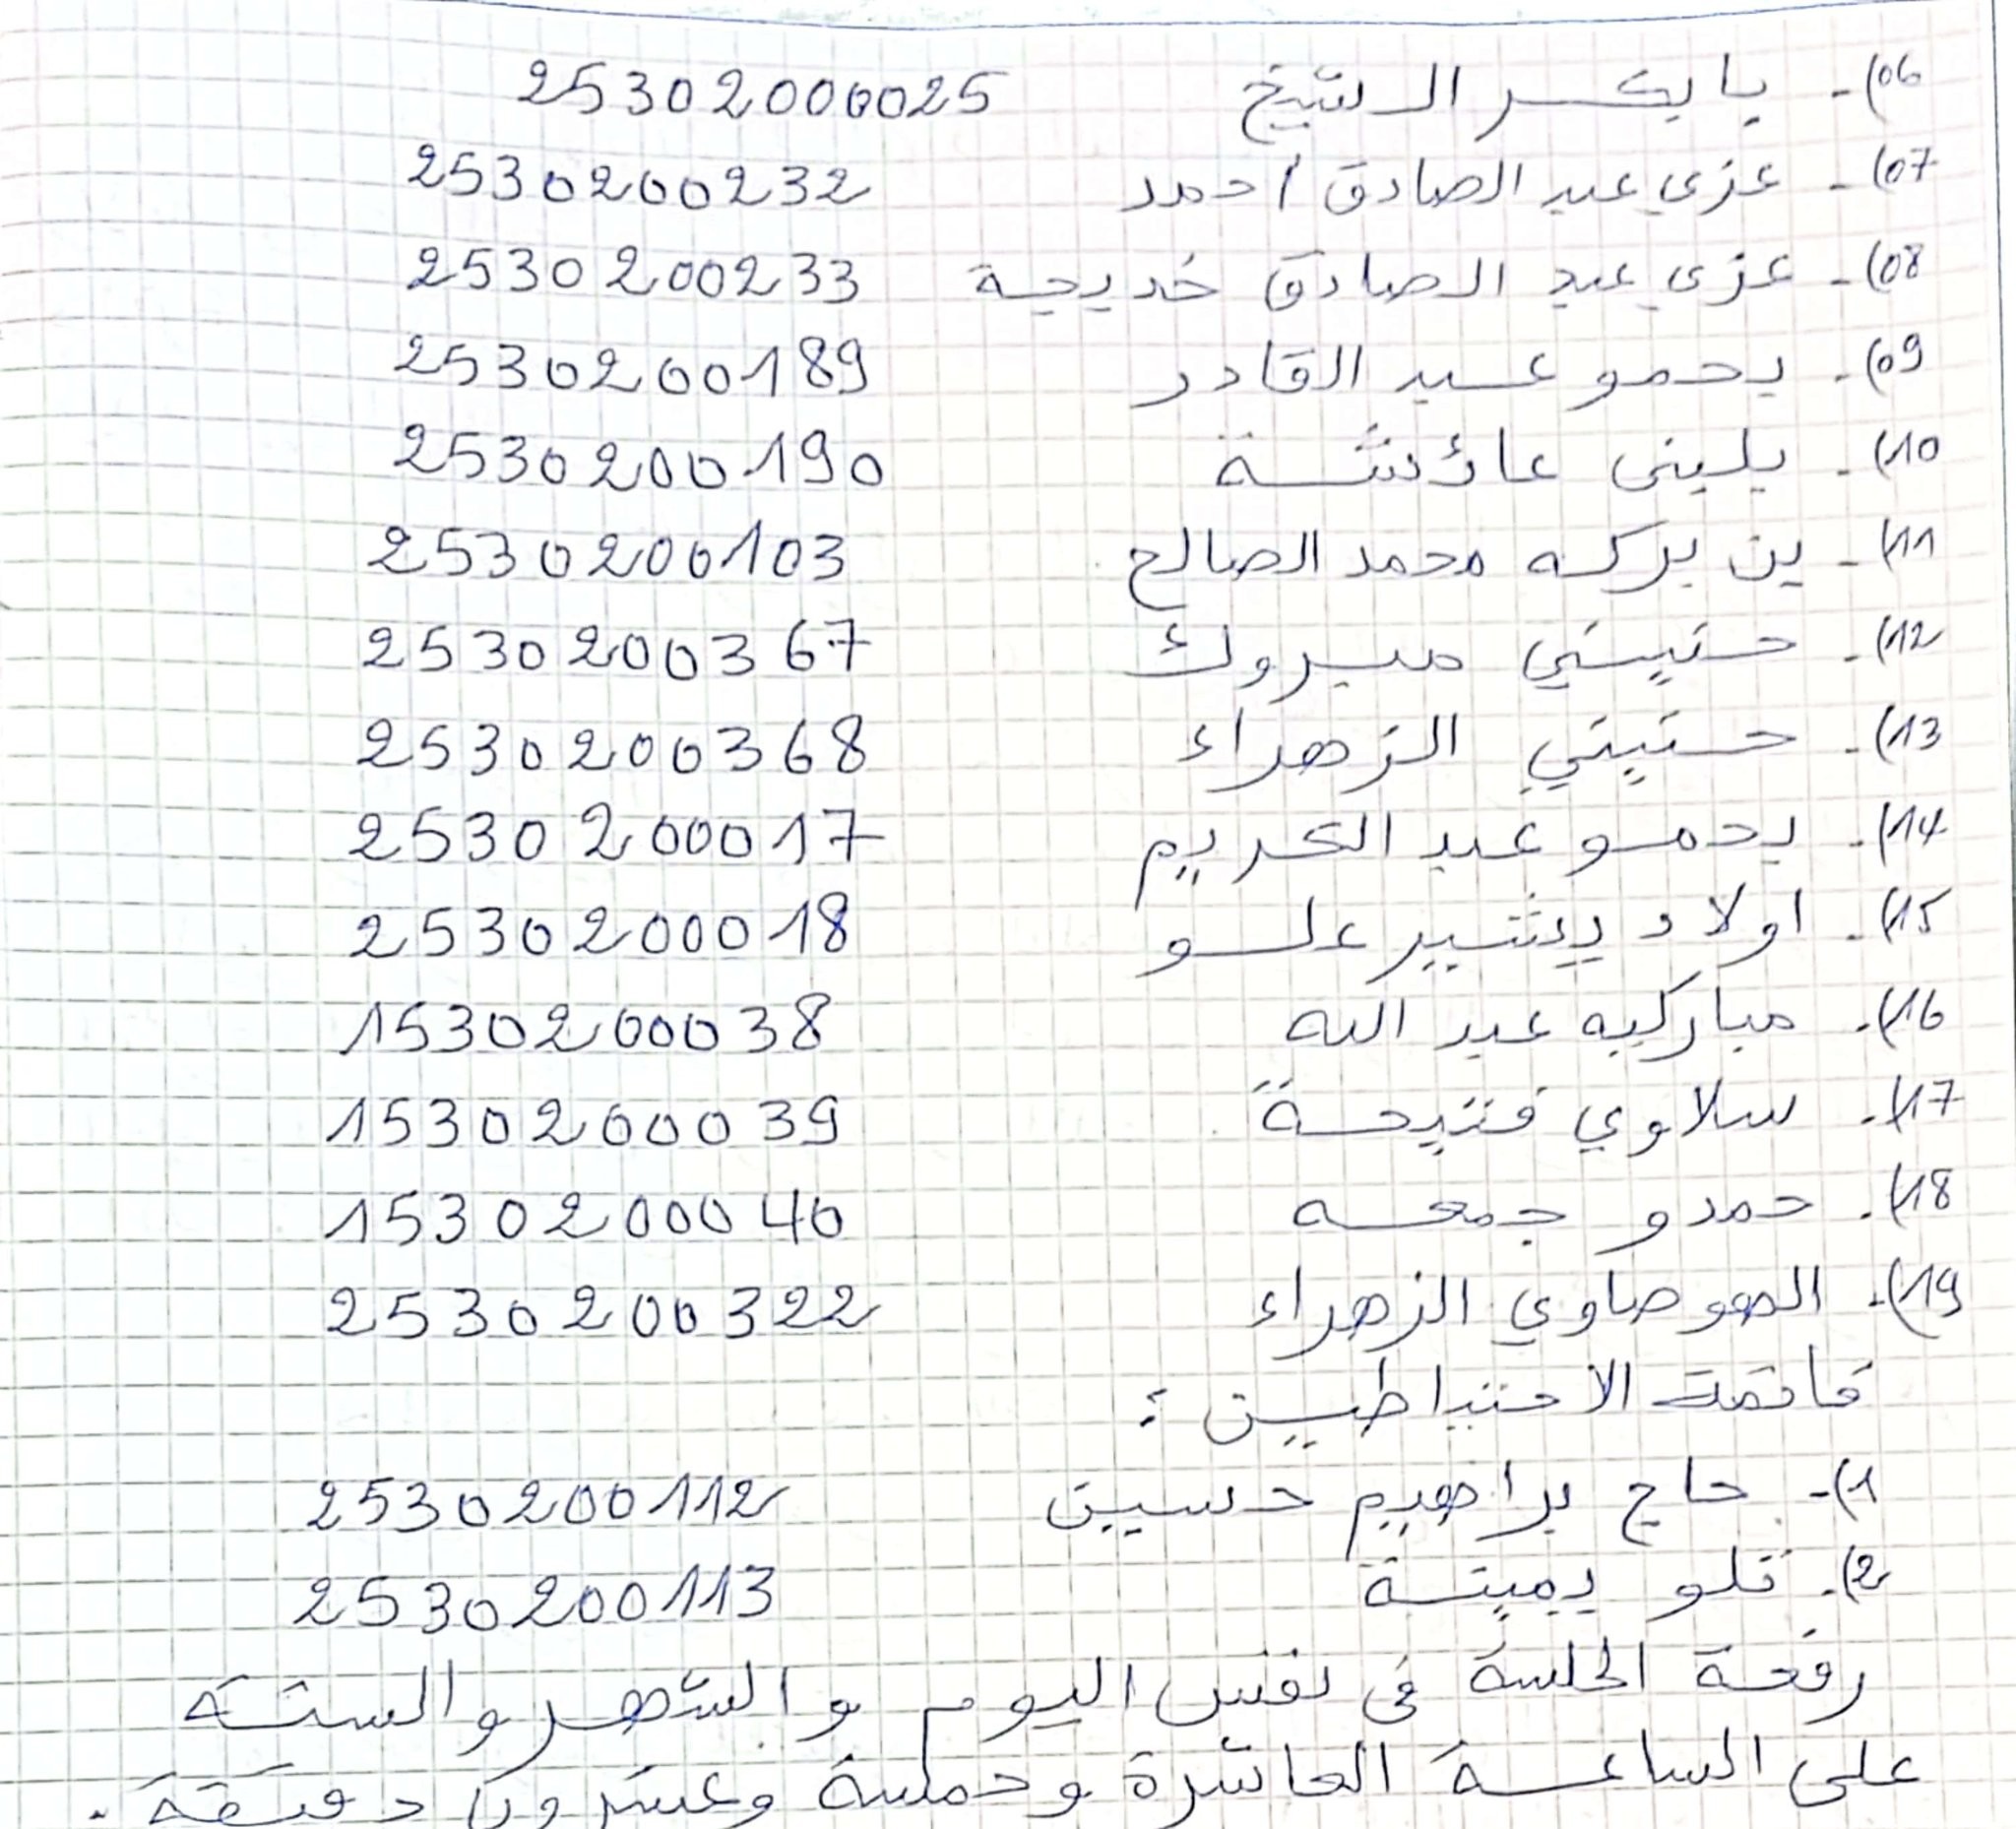 06)- بابكر الشيخ 25302000025
07)- عزي عبد الصادق احمد 2530200232
08)- عزي عبد الصادق خديجة 2530200233
09)- بحمو عبد القادر 2530200189
10)- بليني عائشة 2530200190
11)- بن بركه محمد الصالح 2530200103
12)- حنيني مبروك 2530200367
13)- حنيني الزهراء 2530200368
14)- بحمو عبد الكريم 2530200017
15)- اولاد بشير علو 2530200018
16)- مباركيه عبد الله 1530200038
17)- سلاوي فتيحة 1530200039
18)- حمدو جمعه 1530200040
19)- الصوصاوي الزهراء 2530200322
قائمة الاحتياطيين :
1)- حاج براهيم حسين 2530200112
2)- قلو يمينة 2530200113
رفعة الجلسة في نفس اليوم والشهر والسنة
على الساعة العاشرة وخمسة وعشرون دقيقة .